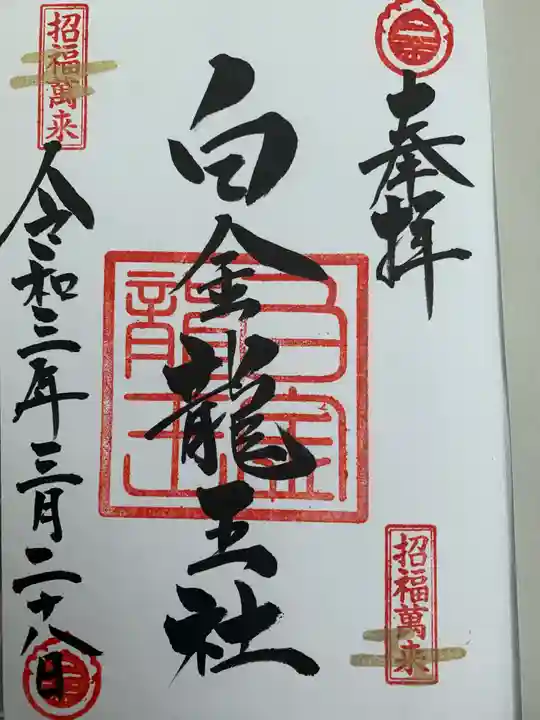 奉拝
招福萬来
白金龍王社
白金
龍王
招福萬来
令和三年三月二十八日